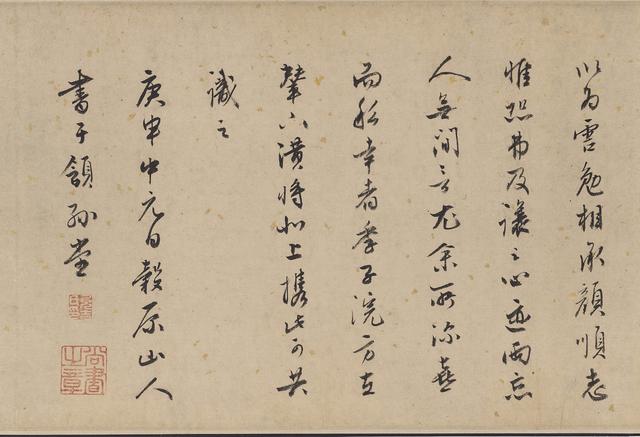 以為雲勉相承顏順志
惟恐弗及讓之心迹兩忘
人無間言尤余所深喜
而私幸者孝子浣方在
輦下濆將北上攜此可共
識之
庚申中元日穀原山人
書于領孫堂
尚書之章